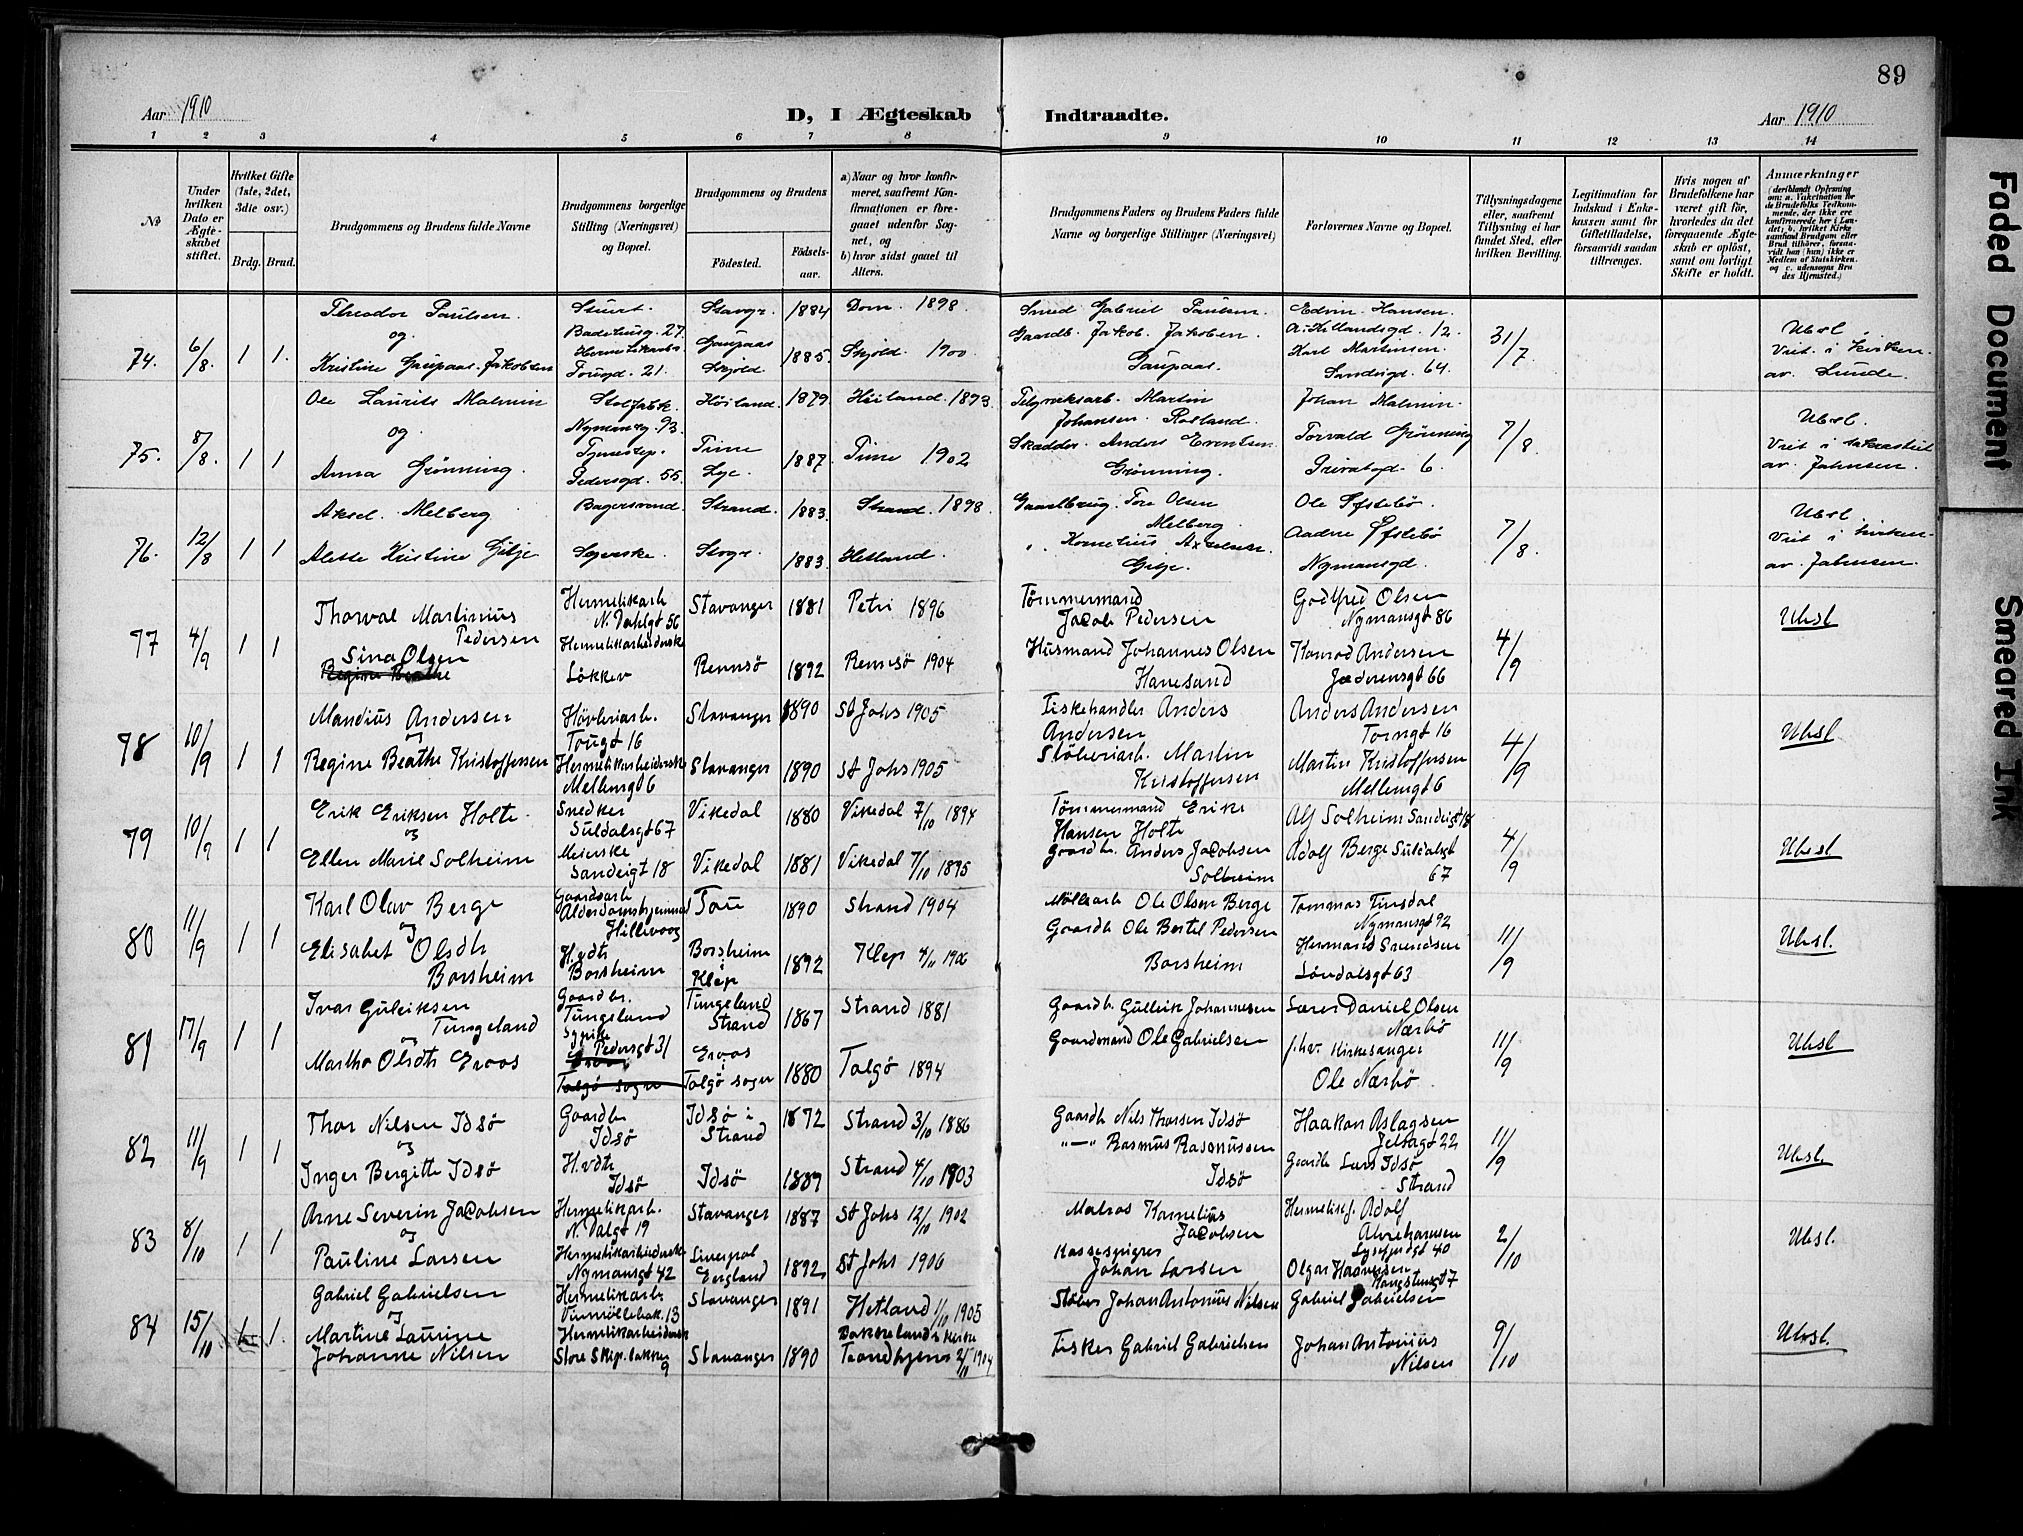 89
Aar 1910
D, I Ægteskab Indtraadte.
Aar 1910
1 2 3 4 5 6 7 8 9 10 11 12 13 14
№
Under hvilken Dato er Ægteskabet stiftet.
Hvilket Gifte (1ste, 2det, 3die osv.)
Brdg. Brud.
Brudgommens og Brudens fulde Navne
Brudgommens borgerlige Stilling (Næringsvei) og Bopæl.
Brudgommens og Brudens
Fødested.
Fødselsaar.
a) Naar og hvor konfirmeret, saafremt Konfirmationen er foregaaet udenfor Sognet, og
b) hvor sidst gaaet til Alters.
Brudgommens Faders og Brudens Faders fulde Navne og borgerlige Stillinger (Næringsvei)
Forlovernes Navne og Bopæl.
Tillysningsdagene eller, saafremt Tillysning ei har fundet Sted, efter hvilken Bevilling.
Legitimation for Indskud i Enkekassen samt for Giftetilladelse, forsaavidt saadan tiltrænges.
Hvis nogen af Brudefolkene har været gift før, hvorledes da det foregaaende Ægteskab er opløst, samt om lovligt Skifte er holdt.
Anmærkninger
74. 6/8. 1 1. Theodor Paulsen Stuert. Stavgr. 1884 Dom. 1898
og
Kristine Gaupaas Jakobsen Tougd. 21. Gaupaas Skjold 1885 Skjold. 1900
Smed Gabriel Paulsen. Edvin Hansen.
Gaardb. Jakob Jakobsen Gaupaas. Karl Martinsen Sandeigd. 64. 31/7 Ubsl. Viet i kirken av Lunde.
75. 8/8. 1 1 Ole Laurits Malmin Nymansg. 93. Høiland. 1879 Høiland. 1893
og
Anna Grønning. Pedersgd. 55. Time Lye. 1887. Time 1902
Martin Johansen Johan Malmin.
Anders Grønning. Torvald Grønning 6. 7/8 Ubsl. Viet i av. Jahnsen.
76. 12/8 1 1 Aksel Melberg Bagersvend. Strand. 1883. Strand. 1898.
Alette Kristine Gilje Syerske. Stvgr. 1883 Hetland.
Tore Olsen Melberg Ole
Kornelius Gilje. Nymansgd. 7/8. Ubsl. Viet i kirken av. Jahnsen.
77 4/9 1 1 Thorval Martinius Pedersen Hermetikarb N. Dahlgt 56 Stavanger 1881 Petri 1896
Sina Olsen
Regine Beathe Hermetikarbeiderske Løkkev Rennsö 1892 Rennsö 1904
Tömmermand Jacob Pedersen Godtfred Olsen Nymansgt 86
Husmand Johannes Olsen Hanesand Konrad Andersen Jæderensgt 66 4/9 Ubsl
78 10/9 1 1 Mandius Andersen Hövleriarb. Tougt 16 Stavanger 1890 St Johs 1905
og
Regine Beathe Kristoffersen Hermetikarbeiderske Mellemgt 6 Stavanger 1890 St Johs 1905
Fiskehandler Anders Andersen Anders Andersen Torngt 16
Støberiarb. Martin Kristoffersen Martin Kristoffersen Mellemgt 6 4/9 Ubsl
79 10/9 1 1 Erik Eriksen Holte Snedker Suldalsgt 67 Vikedal 1880 Vikedal 7/10 1894
og
Ellen Marie Solheim Meierske Sandeigt 18 Vikedal 1881 Vikedal 7/10 1895
Tömmermand Erik Hansen Holte Alf Solheim Sandeigt 18
Gaardbr. Anders Jacobsen Solheim Adolf Berge Suldalsgt 67 4/9 Ubsl
80 11/9 1 1 Karl Olav Berge Gaardsarb Alderdomshjemmet Hillevaag Tou 1890 Strand 1904
og
Elisabet Olsdtr Borsheim H.vdtr Borsheim Borsheim i Klep 1892 Klep 4/11 1906
Möllearb Ole Olsen Berge Tommas Tinsdal Nymansgt 92
Gaardb Ole Bertel Pedersen Borsheim Hermand Svendsen Løndalsgt 63 11/9 Ubsl.
81 17/9 1 1 Ivar Guleiksen Tungeland Gaardbr. Tungeland Tungeland Strand 1867 Strand 1881
og
Martha Olsdtr Eraas Pedersgt 31 Talgö sogn Eraas i Talgö sogn 1880 Talgö 1894
Gaardb. Gulleik Johannesen Lærer Daniel Olsen Nærbö
Gaardmand Ole Gabrielsen f.hv. Kirkesanger Ole Nærbö 11/9 Ubsl
82 11/9 1 1 Thor Nilsen Idsö Gaardbr Idsö Idsö i Strand 1872 Strand 3/10 1886
og
Inger Bergitte Idsö H.vdtr Idsö Idsö 1889 Strand 4/10 1903
Gaardb Nils Thorsen Idsö Haakon Aslagsen Jelsagt 22
"—" Rasmus Rasmussen Idsö Gaardb Lars Idsö Strand 11/9 Ubsl.
83 8/10 1 1 Arne Severin Jacobsen Hermetikarb. N. Dalgt 19 Stavanger 1887 St Johs 12/10 1902
og
Pauline Larsen Hermetikarbeiderske Nymansgt 42 Liverpol England 1892 St Johs 1906
Matros Kornelius Jacobsen Hermetikf. Adolf Lysefjordgt 40
Kassespigrer Johan Larsen Olgar Haaversen 7 2/10 Ubsl.
84 15/10 1 1. Gabriel Gabrielsen Hermetikarb Vinmöllebak. 13 Stavanger 1891 Hetland 1/10 1905
og
Martine Laurine Johanne Nilsen Hermetikarbeidersk Store Skip. bakken 9 Stavanger 1890 Bakkelands kirke Trondhjem 2/10 1904
Støber Johan Antonius Nilsen Gabriel Gabrielsen
Fisker Gabriel Gabrielsen Johan Antonius Nilsen 9/10 Ubsl.
Faded Document
Smeared Ink